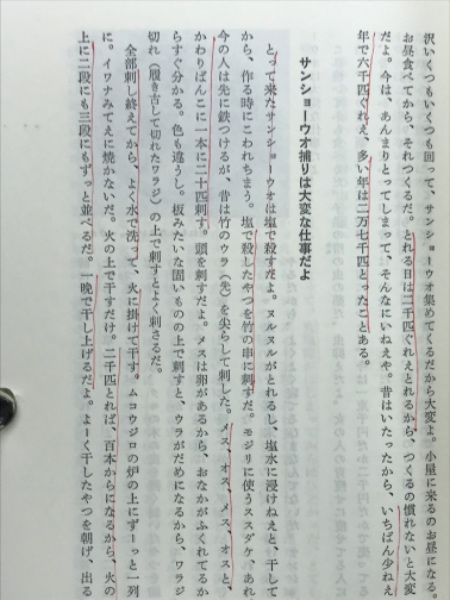 沢いくつもいくつも回って、サンショーウオ集めてくるだから大変よ。小屋に来るのお昼になる。
お昼食べてから、それつくるだ。とれる日は二千匹ぐれえとれるから、つくるの慣れないと大変
だよ。今は、あんまりとってしまって、そんなにいねえや。昔はいたったから、いちばん少ねえ
年で六千匹ぐれえ、多い年は二万七千匹とったことある。
サンショーウオ捕りは大変な仕事だよ
とって来たサンショーウオは塩で殺すだよ。ヌルヌルがとれるし、塩水に浸けねえと、干して
から、作る時にこわれちまう。塩で殺したやつを竹の串に刺すだ。モジリに使うスズダケ、あれ
今の人は先に鉄つけるが、昔は竹のウラ（先）を尖らして刺した。メス、オス、メス、オスと、
かわりばんこに一本に二十匹刺す。頭を刺すだよ。メスは卵があるから、おなかがふくれてるか
らすぐ分かる。色も違うし。板みたいな固いものの上で刺すと、ウラがだめになるから、ワラジ
切れ（履き古して切れたワラジ）の上で刺すとよく刺さるだ。
全部刺し終えてから、よく水で洗って、火に掛けて干す。ムコウジロの炉の上にずーっと一列
に。イワナみてえに焼かないだ。火の上で干すだけ。二千匹とれば、百本からになるから、火の
上に二段にも三段にもずっと並べるだ。一晩で干し上げるだよ。よーく干したやつを朝げ、出る